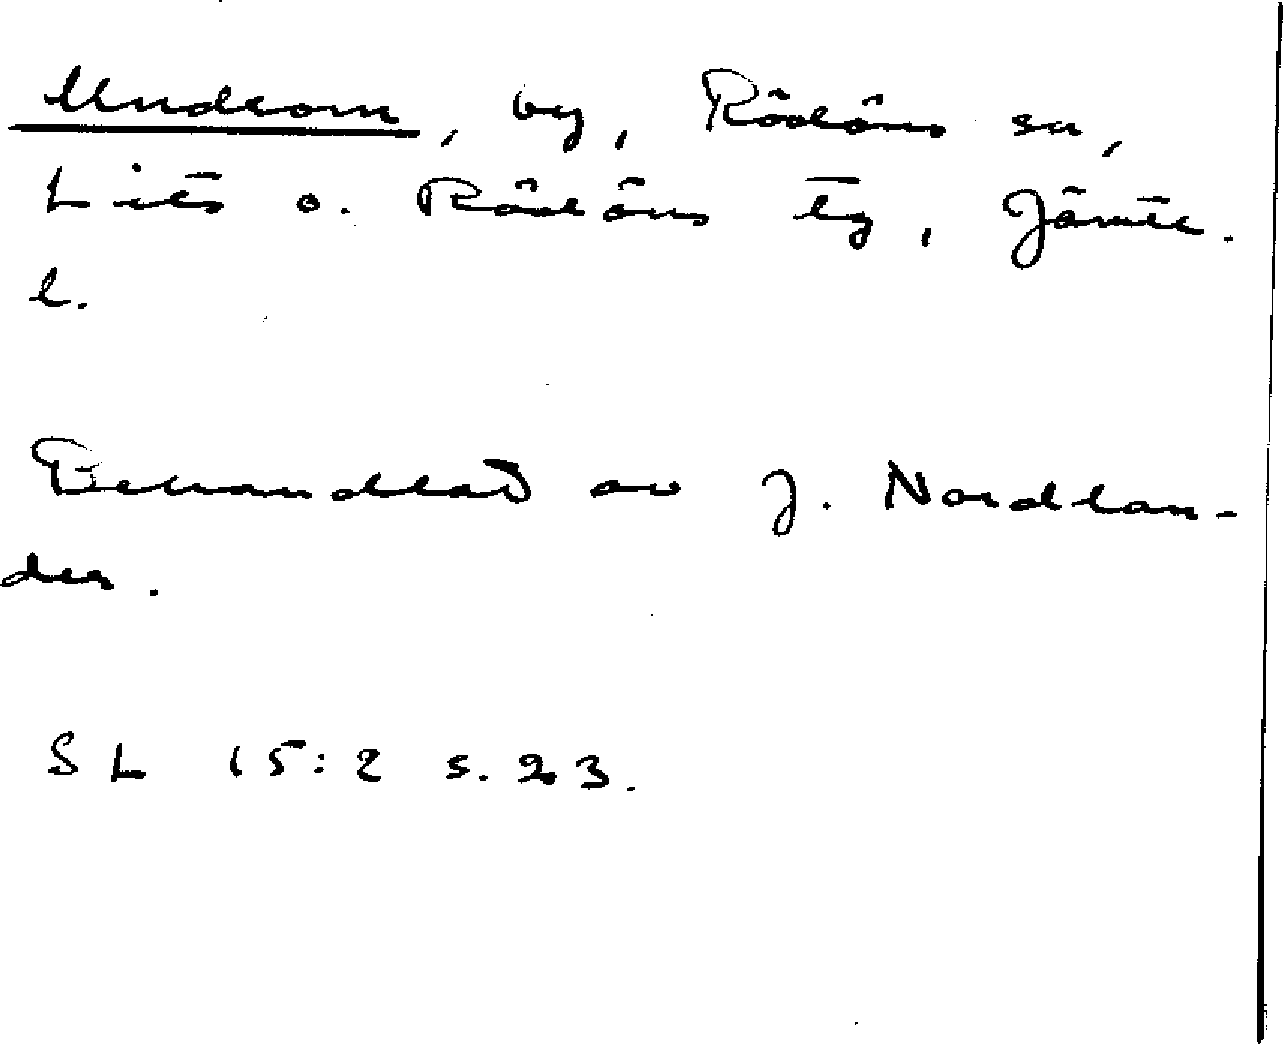 Undrom, by, Rödöns sn,
Lits o. Rödöns tg, Jämtl.
l.
Behandlat av J. Nordlan-
der.
SL 15:2 s. 23.